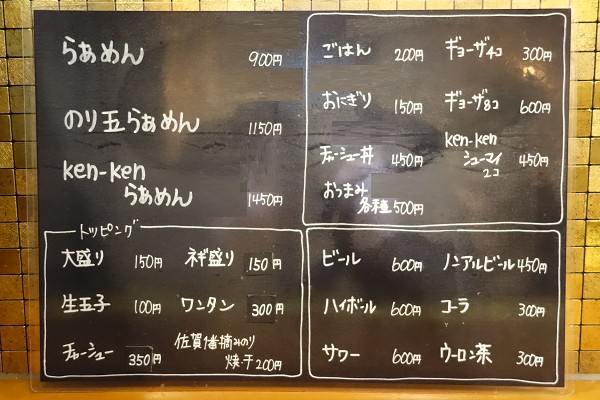 らぁめん 900円
のり玉らぁめん 1150円
ken-ken
らぁめん 1450円
トッピング
大盛り 150円 ネギ盛り 150円
生玉子 100円 ワンタン 300円
チャーシュー 350円 佐賀1番摘みのり
焼・干 200円
ごはん 200円 ギョーザ4コ 300円
おにぎり 150円 ギョーザ8コ 600円
チャーシュー丼 450円 ken-ken
シューマイ 450円
2コ
おつまみ
各種 500円
ビール 600円 ノンアルビール 450円
ハイボール 600円 コーラ 300円
サワー 600円 ウーロン茶 300円